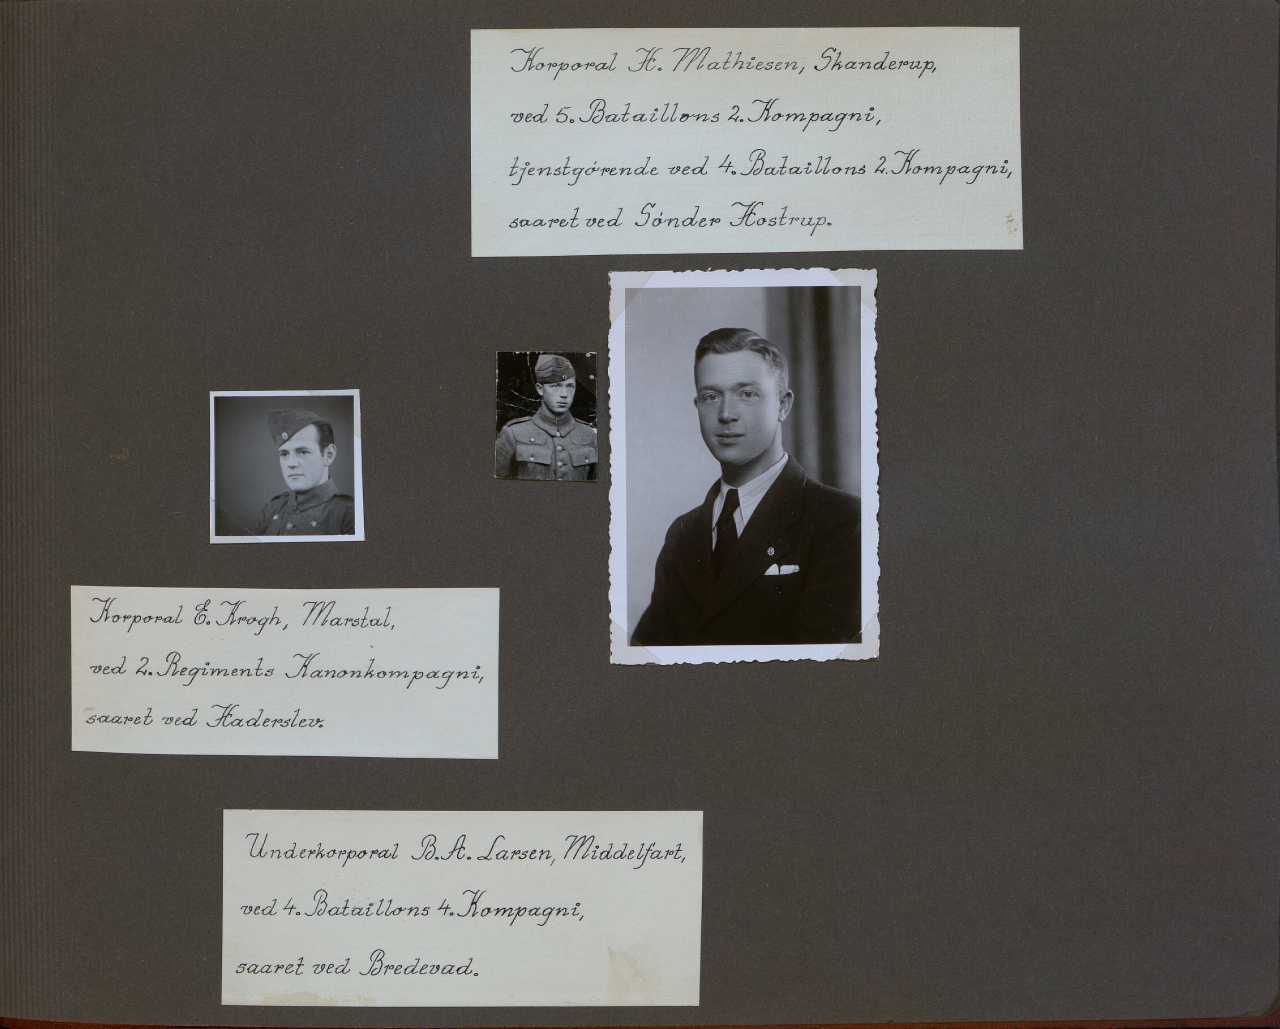 Korporal H. Mathiesen, Skanderup,
ved 5. Bataillons 2. Kompagni,
tjenstgórende ved 4. Bataillons 2. Kompagni,
saaret ved Sónder Hostrup.
Korporal E. Krogh, Marstal,
ved 2. Regiments Kanonkompagni,
saaret ved Haderslev.
Underkorporal B. A. Larsen, Middelfart,
ved 4. Bataillons 4. Kompagni,
saaret ved Bredevad.